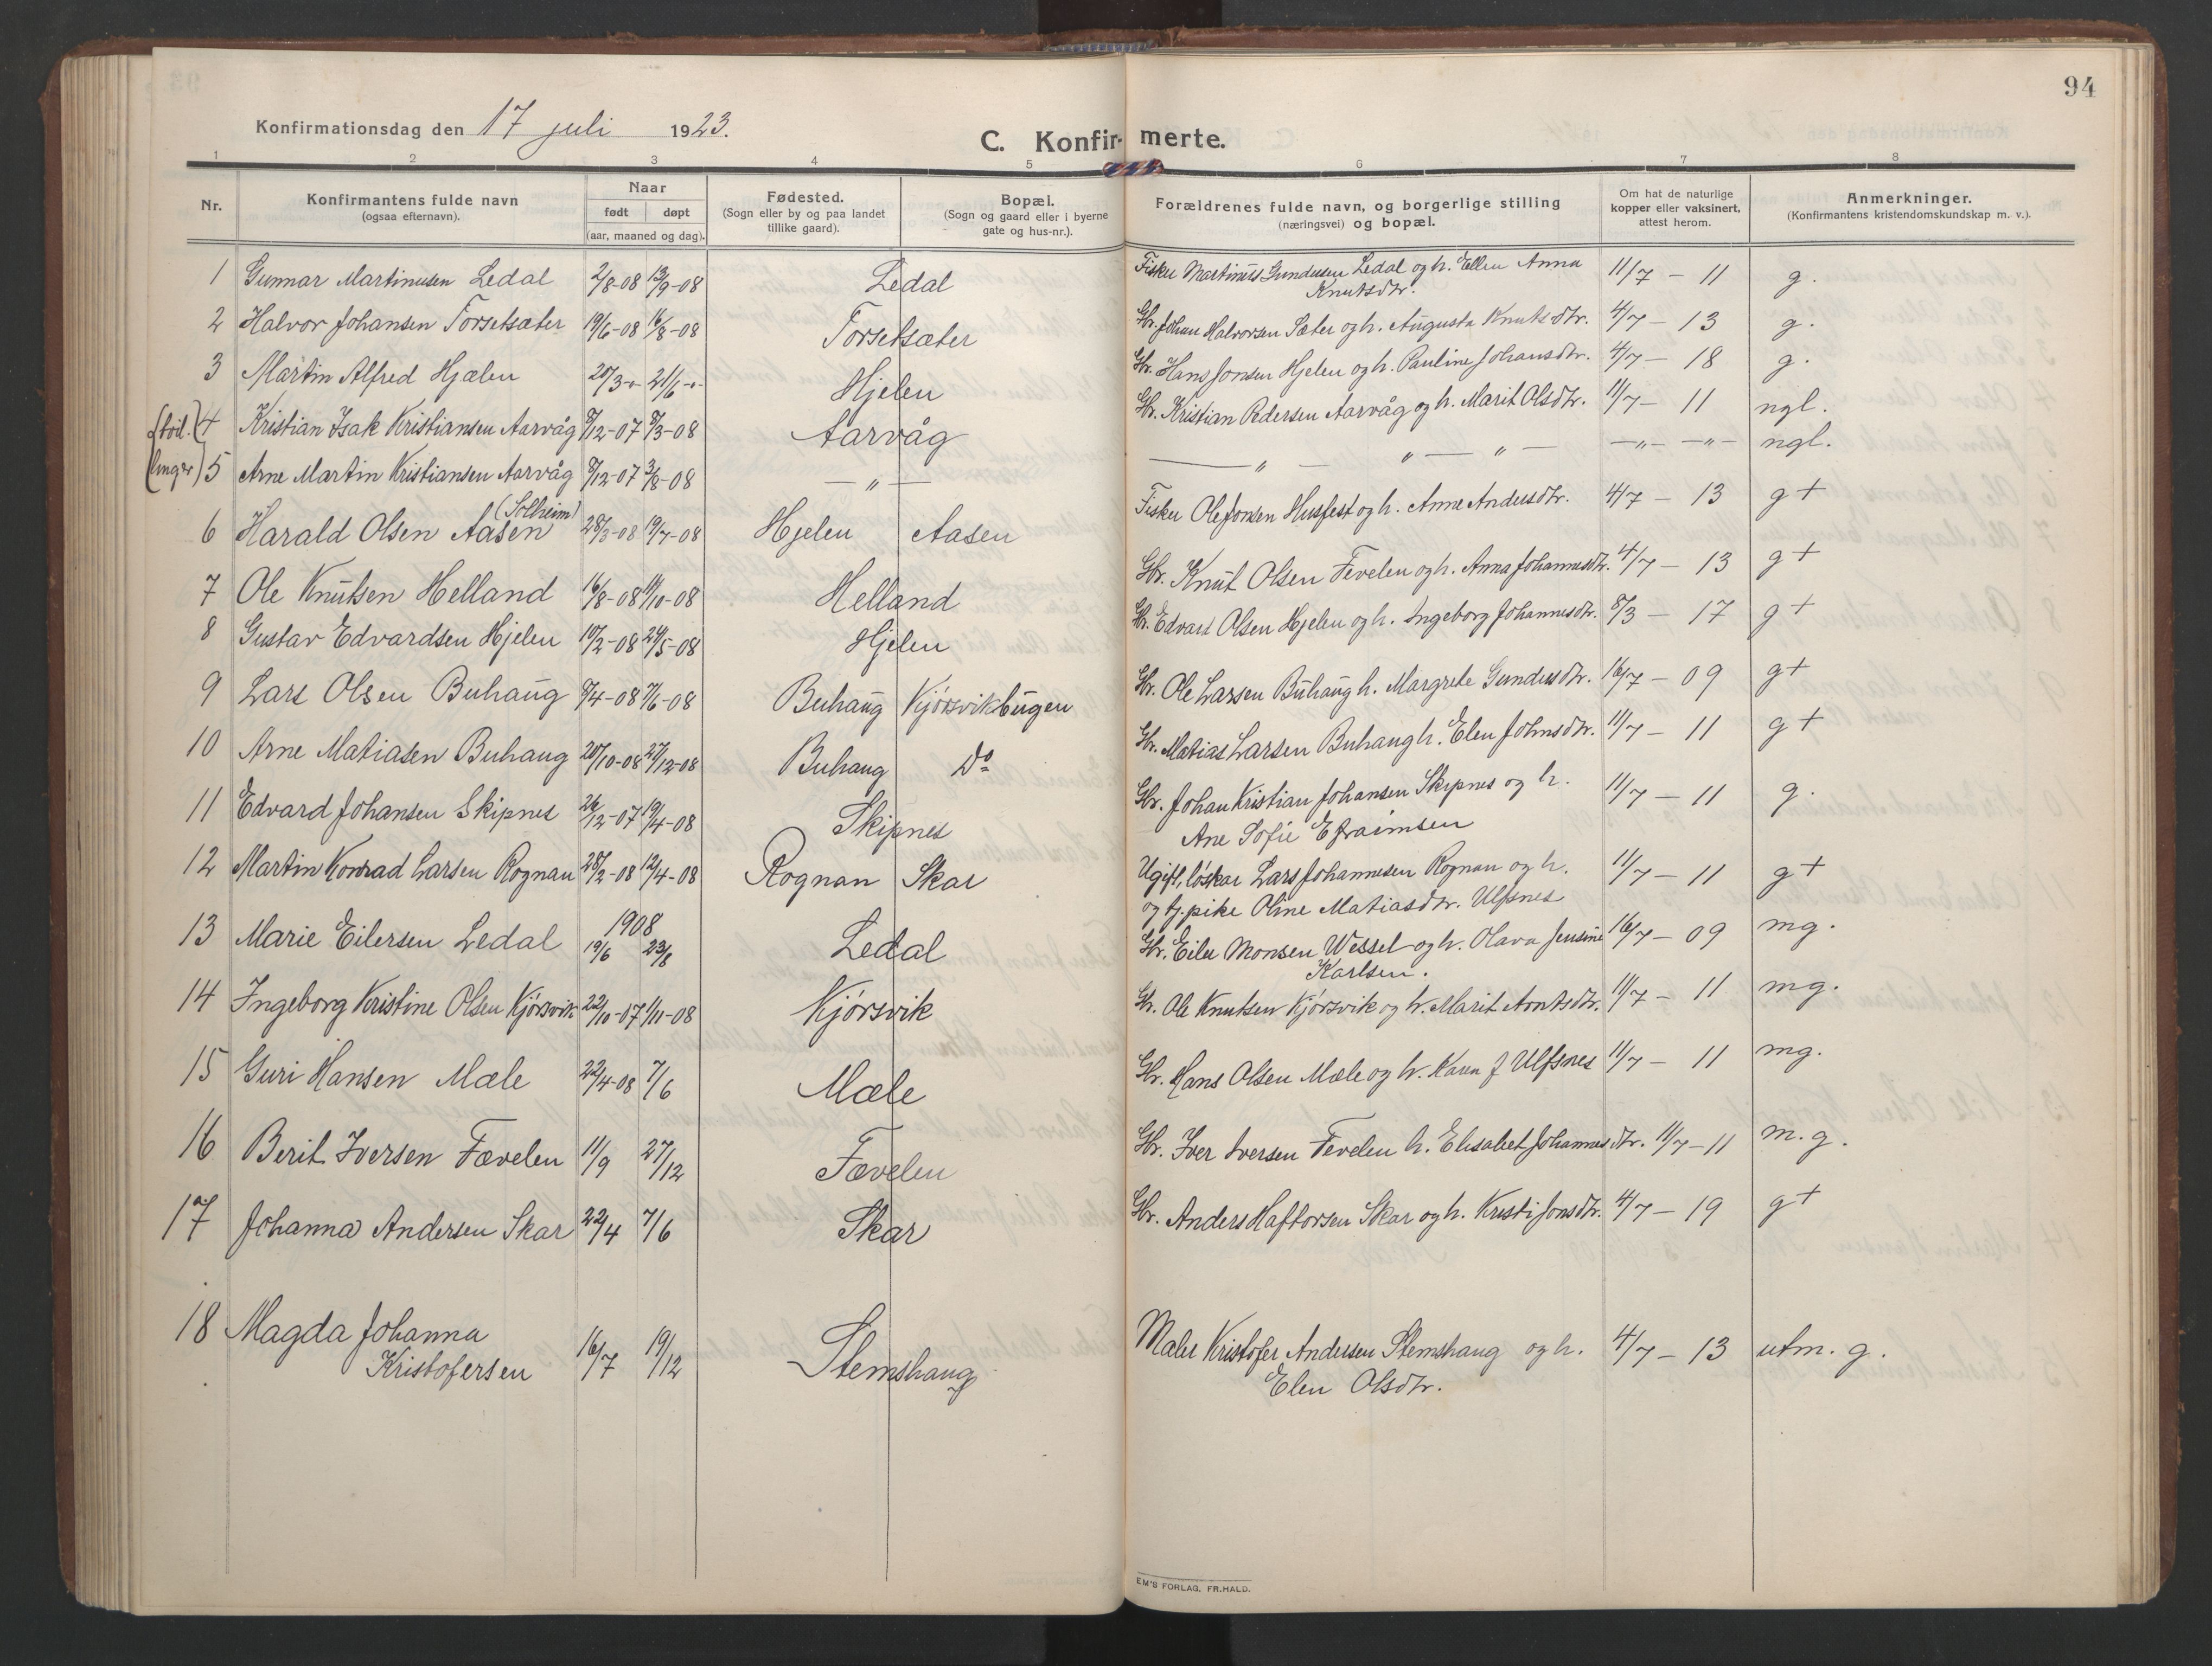 94
Konfirmationsdag den 17 juli 1923.
C. Konfirmerte.
1 2 3 4 5 6 7 8
Nr. Konfirmantens fulde navn (ogsaa efternavn). Naar født døpt (aar, maaned og dag). Fødested. (Sogn eller by og paa landet tillike gaard). Bopæl. (Sogn og gaard eller i byerne gate og hus-nr.). Forældrenes fulde navn, og borgerlige stilling (næringsvei) og bopæl. Om hat de naturlige kopper eller vaksinert, attest herom. Anmerkninger. (Konfirmantens kristendomskundskap m. v.).
1 Gunnar Martinusen Ledal 2/8-08 13/9-08 Ledal Fisker Martinus Gundersen Ledal og h. Ellen Anna 11/7 - 11 g.
Knutsdtr.
2 Halvor Johansen Torsetsæter 19/6-08 16/8-08 Torsetsæter Gbr. Johan Halvorsen Sæter og h. Augusta Knutsdtr. 4/7 - 13 g.
3 Martin Alfred Hjælen 20/3-"- 21/6-"- Hjelen Gbr. Hans Jonsen Hjelen og h. Pauline Johansdtr. 4/7 - 18 g.
(tvil.) 4 Kristian Isak Kristiansen Aarvåg 8/12-07 8/3-08 Aarvåg Gbr. Kristian Pedersen Aarvåg og h. Marit Olsdtr. 11/7 - 11 ngl.
(linger) 5 Arne Martin Kristiansen Aarvåg 8/12-07 3/8-08 - " - - " - " - " - - " - - " - ngl.
6 Harald Olsen Aasen (Solheim) 28/3-08 19/7-08 Hjelen Aasen Fisker Ole Jonsen Husfest og h. Anne Andersdtr. 4/7 - 13 g +
7 Ole Knutsen Helland 16/8-08 11/10-08 Helland Gbr. Knut Olsen Fevelen og h. Anna Johannesdtr. 4/7 - 13 g +
8 Gustav Edvardsen Hjelen 10/2-08 24/5-08 Hjelen Gbr. Edvard Olsen Hjelen og h. Ingeborg Johannesdtr. 8/3 - 17 g +
9 Lars Olsen Buhaug 8/4-08 7/6-08 Buhaug Kjørsvikbugen Gbr. Ole Larsen Buhaug h. Margrete Gundersdtr. 16/7 - 09 g +
10 Arne Matiasen Buhaug 20/10-08 27/12-08 Buhaug Do Gbr. Matias Larsen Buhaug h. Elen Johnsdtr. 11/7 - 11 g +
11 Edvard Johansen Skipnes 26/12-07 19/4-08 Skipnes Gbr. Johan Kristian Johansen Skipnes og h. 11/7 - 11 g.
Ane Sofie Efraimsen
12 Martin Konrad Larsen Rognan 28/2-08 12/4-08 Rognan Skar Ugift, løskar Lars Johannesen Rognan og h. 11/7 - 11 g +
og tj. pike Oline Matiasdtr. Ulfsnes
13 Marie Eilersen Ledal 1908 19/6 23/8 Ledal Gbr. Eiler Monsen Wessel og h. Olava Jensine 16/7 - 09 mg.
Karlsen.
14 Ingeborg Kristine Olsen Kjørsvik 22/10-07 1/11-08 Kjørsvik Gbr. Ole Knutsen Kjørsvik og h. Marit Arntsdtr. 11/7 - 11 mg.
15 Guri Hansen Mæle 22/4-08 7/6 Mæle Gbr. Hans Olsen Mæle og h. Karen J Ulfsnes 11/7 - 11 mg.
16 Berit Iversen Fævelen 11/9 27/12 Fævelen Gbr. Iver Iversen Fevelen h. Elisabet Johannesdtr. 11/7 - 11 m. g.
17 Johanna Andersen Skar 22/4 7/6 Skar Gbr. Anders Haftorsen Skar og h. Kristi Jonsdtr. 4/7 - 19 g +
18 Magda Johanna
Kristofersen 16/7 19/12 Stemshaug Maler Kristofer Andersen Stemshaug og h. 4/7 - 13 utm. g.
Elen Olsdtr.
EM'S FORLAG, FR.HALD.